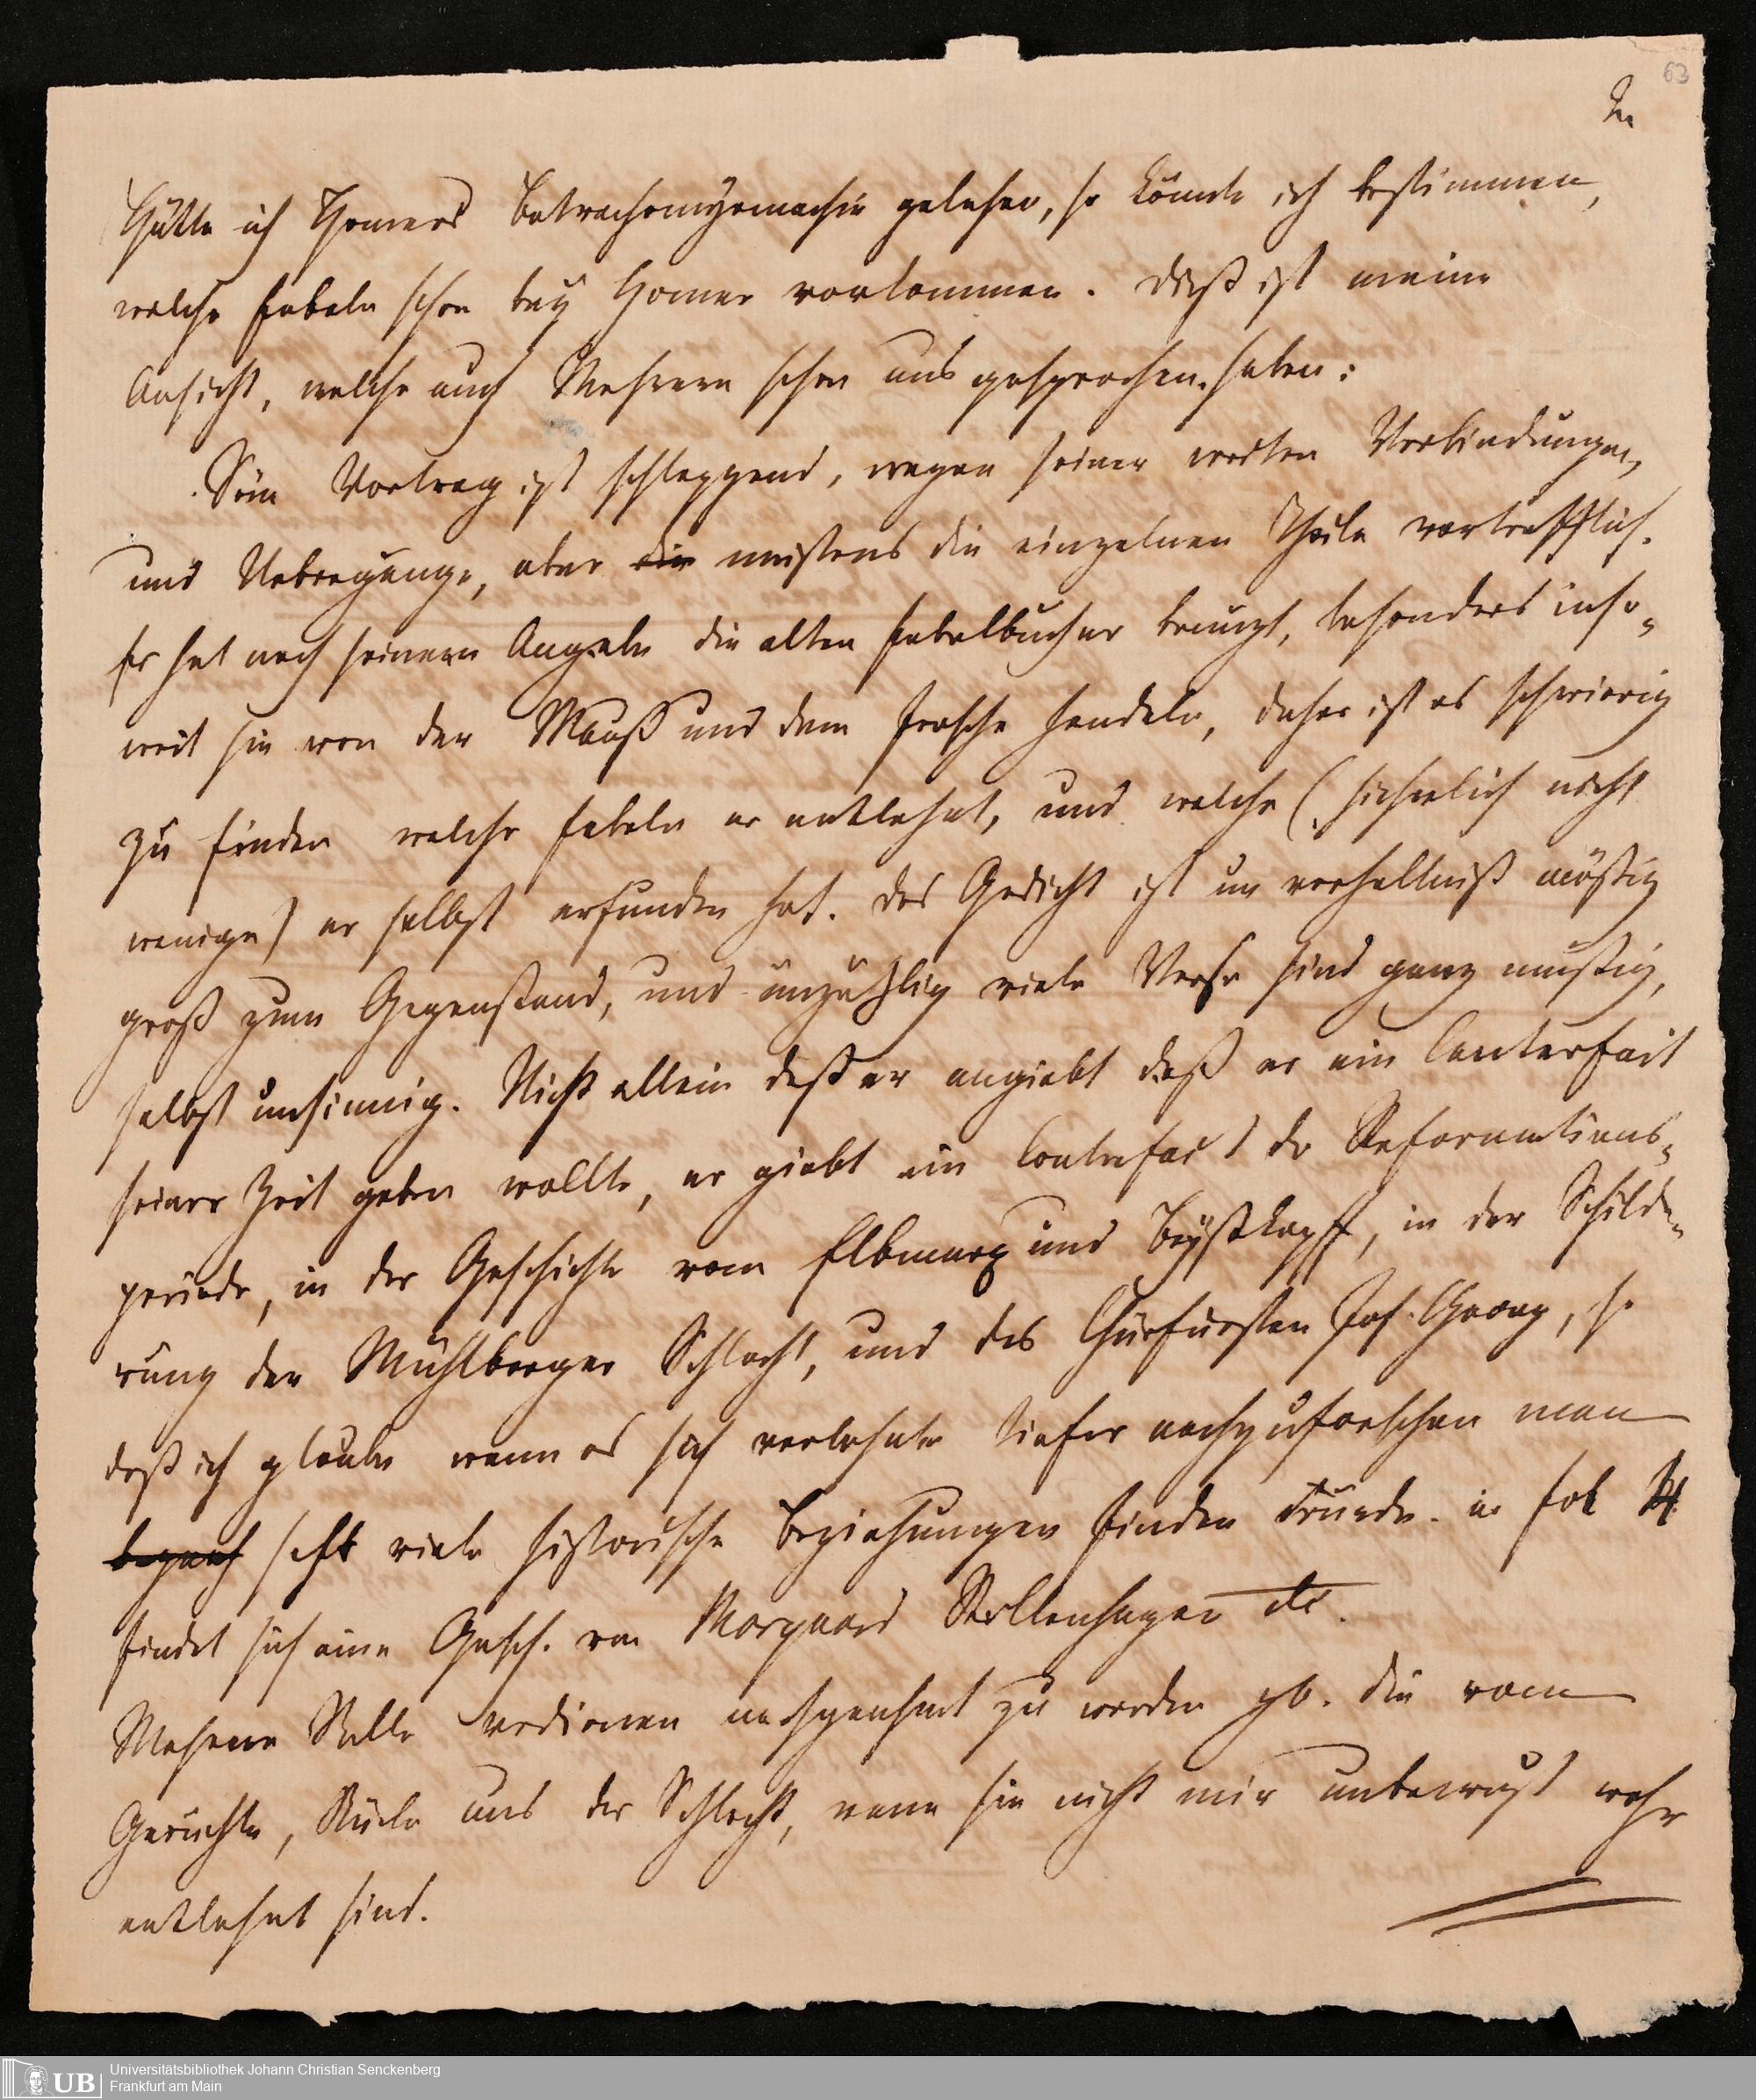 63
2n
Hätte ich Homers Batrachomyomachie gelesen, so könnte ich bestimmen,
welche Fabeln schon bey Homer vorkommen. Dieß ist meine
Ansicht, welche auch Mehrere schon ausgesprochen haben:
Sein Vortrag ist schleppend, wegen seiner weiten Verbindungen,
und Uebergänge, aber die meistens die einzelnen Theile vortrefflich.
Er hat nach seinem Angeben die alten Fabelbücher benutzt, besonders inso-
weit sie von der Mauß und dem Frosche handeln, daher ist es schwierig
zu finden welche Fabeln er entlehnt, und welche (sicherlich nicht
wenige) er selbst erfunden hat. Das Gedicht ist un verhältniß mäßig
groß zum Gegenstand, und unzählig viele Verse sind ganz müßig,
selbst unsinnig. Nicht allein daß er angiebt daß er ein Conterfait
seiner Zeit geben wollte, er giebt ein Contrefait der Reformations-
periode, in der Geschichte vom Elbmarx und Beyßkopff, in der Schilde-
rung der Mühlberger Schlacht, und des Churfürsten Joh. Georg, so
daß ich glaube wenn es sich verlohnte tiefer nachzuforschen man
sehr viele historische Beziehungen finden würde. in fol
findet sich eine Gesch. von Rollenhagen etc.
Mehrere Stelle verdienen nachgeahmt zu werden zb. die vom
Gerüchte, Viele aus der Schlacht, wenn sie nicht mir unbewußt woher
entlehnt sind.
UB
Universitätsbibliothek Johann Christian Senckenberg
Frankfurt am Main